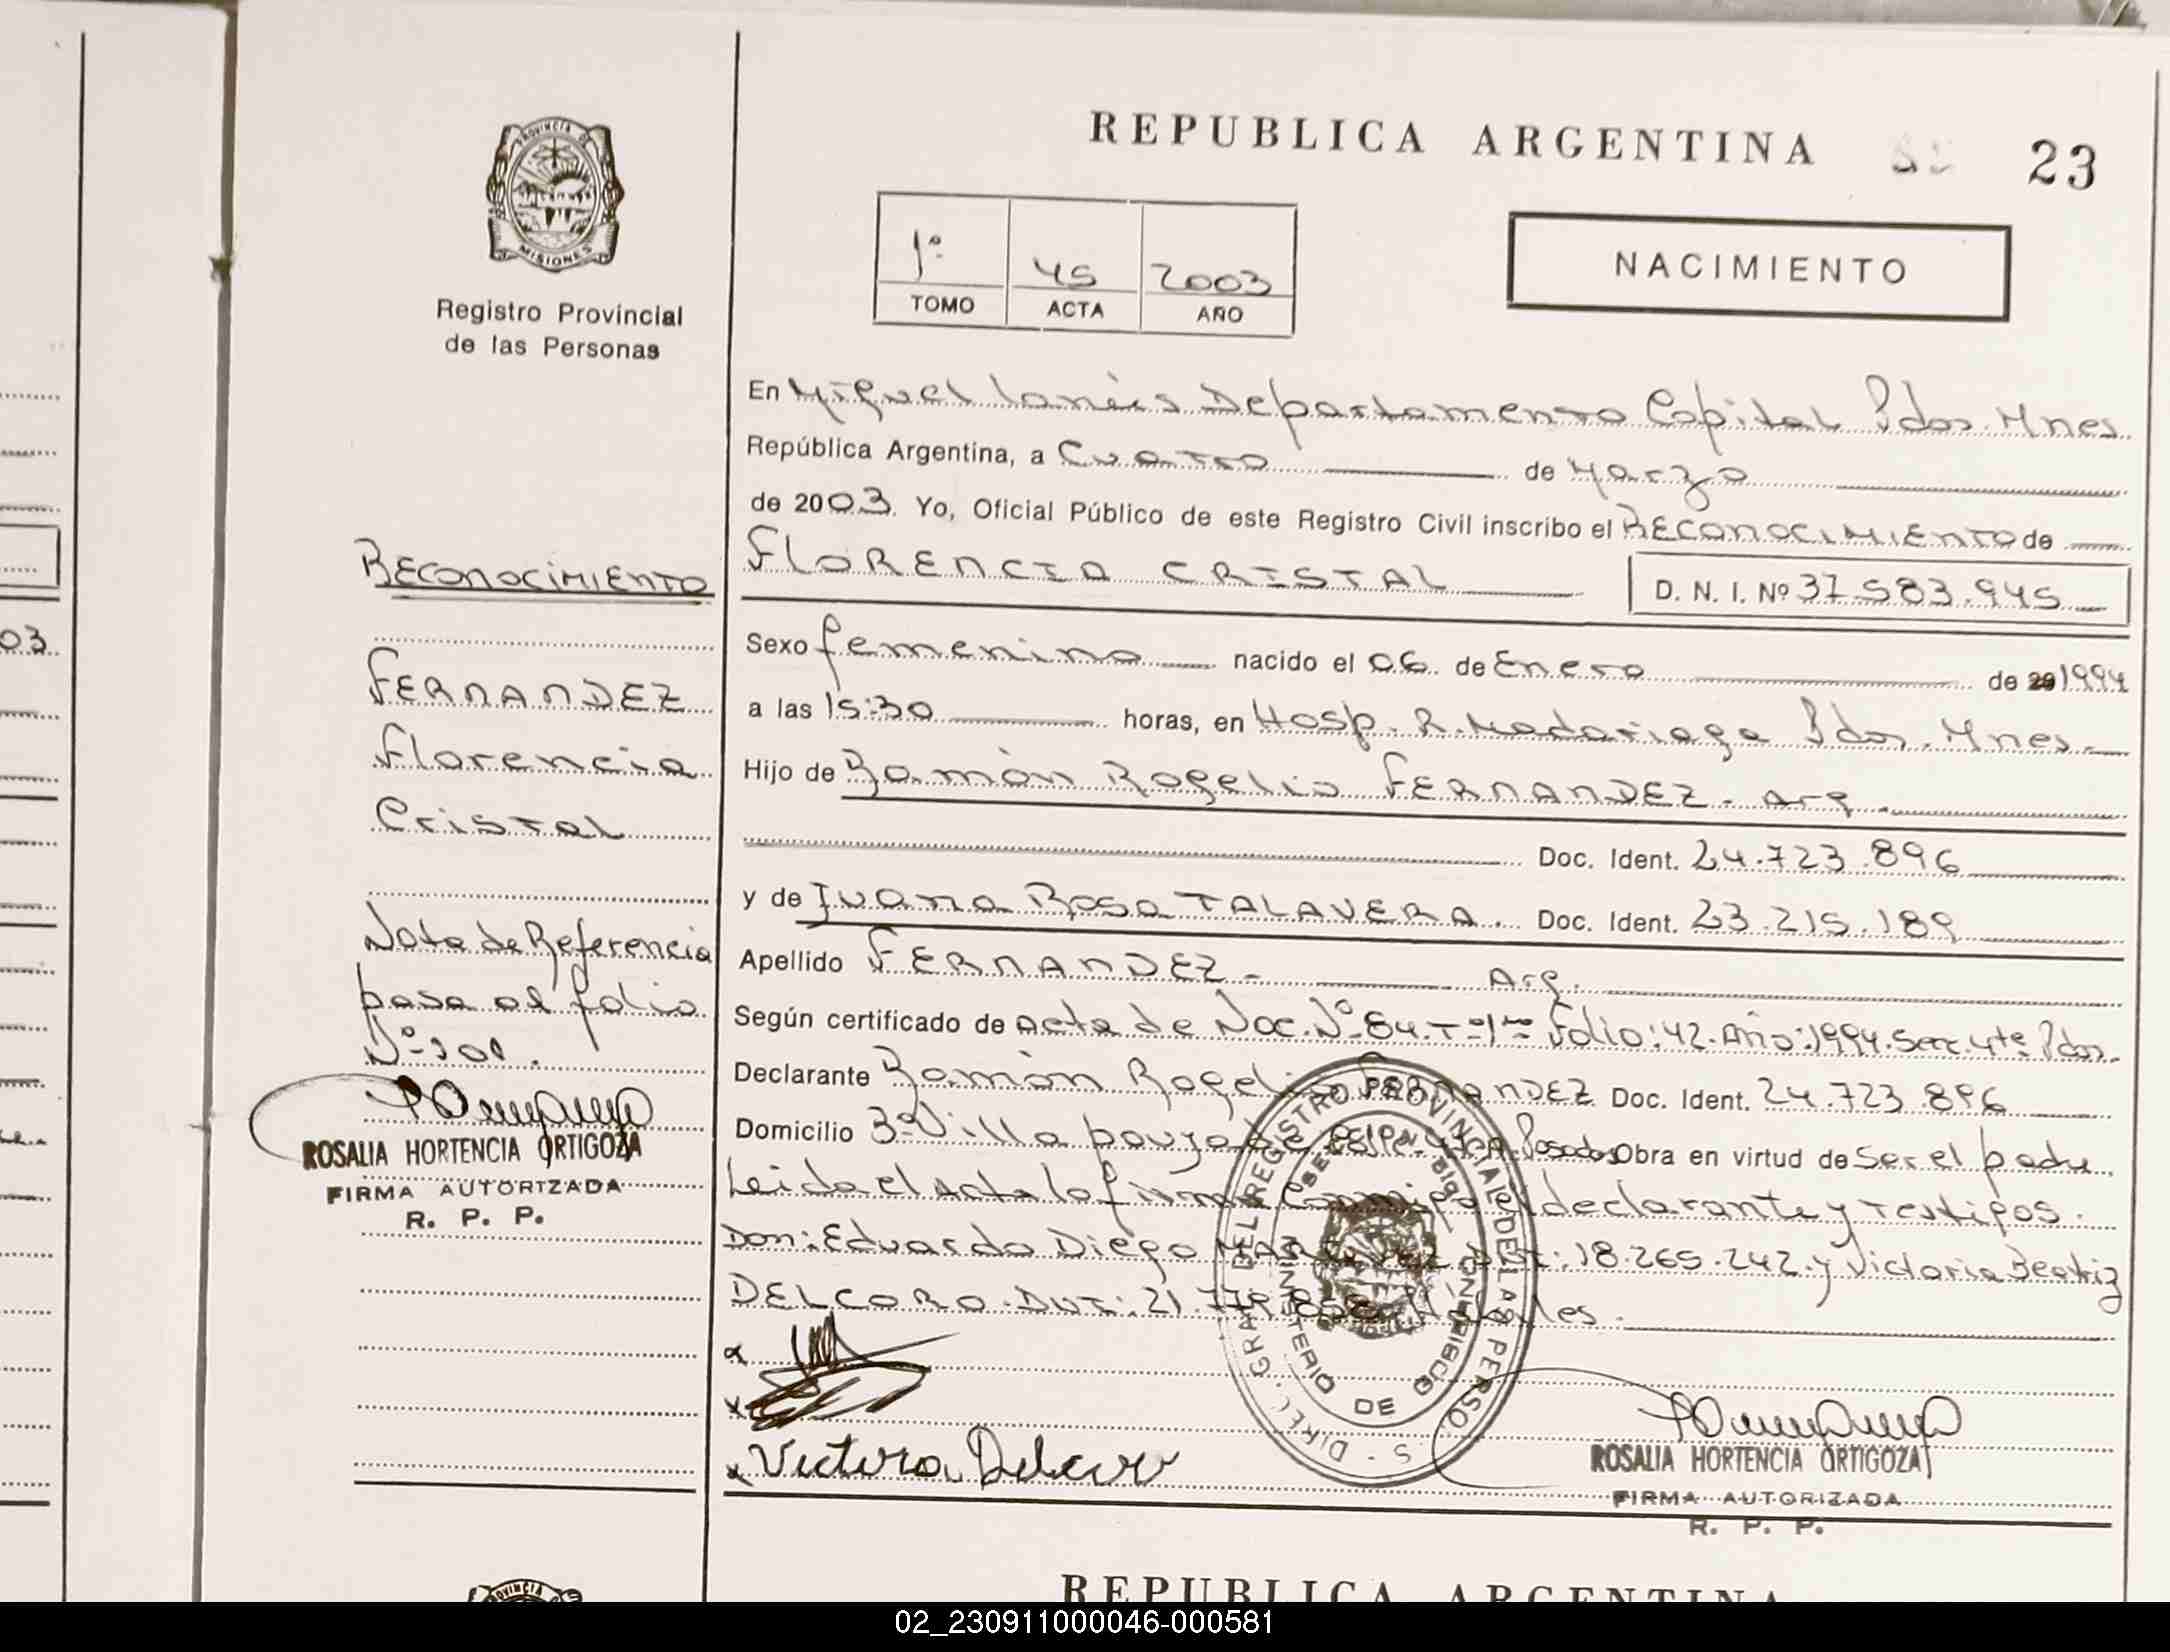 REPUBLICA ARGENTINA 23
PROVINCIA DE
MISIONES
Registro Provincial
de las Personas
1º 45 2003
TOMO ACTA AÑO
NACIMIENTO
En Miguel Lanús Departamento Capital Pdas. Mnes.
República Argentina, a Cuatro de Marzo
de 2003. Yo, Oficial Público de este Registro Civil inscribo el RECONOCIMIENTO de
FLORENCIA CRISTAL
D. N. I. Nº 37.583.945
Sexo femenino nacido el 06 de Enero de 20 1994
a las 15:30 horas, en Hosp. R. Madariaga Pdas. Mnes.
Hijo de Ramón Rogelio FERNANDEZ - Arg.
Doc. Ident. 24.723.896
y de Juana Rosa TALAVERA. Doc. Ident. 23.215.189
Apellido FERNANDEZ - Arg.
Según certificado de acta de Nac. Nº 84. Tº 1º Folio: 42. Año: 1994. Secc. 4ta. Pdas.
Declarante Ramón Rogelio FERNANDEZ Doc. Ident. 24.723.896
Domicilio 3º Villa Posadas Obra en virtud de ser el padre
Leida el Acta la firma Conmigo el declarante y testigos.
Don: Eduardo Diego 18.265.242 y Victoria Beatriz
DELCORO. DNI: 21.779.858 Hábiles.
x
x
x Victoria Delcoro
ROSALIA HORTENCIA ORTIGOZA
FIRMA AUTORIZADA
R. P. P.
RECONOCIMIENTO
FERNANDEZ
Florencia
Cristal
Nota de Referencia
pasa al folio
Nº 101.
ROSALIA HORTENCIA ORTIGOZA
FIRMA AUTORIZADA
R. P. P.
DIREC. GRAL DEL REGISTRO PROVINCIAL DE LAS PERSO.
MINISTERIO DE GOBIERNO
03
PROVINCIA
REPUBLICA ARGENTINA
02_230911000046-000581